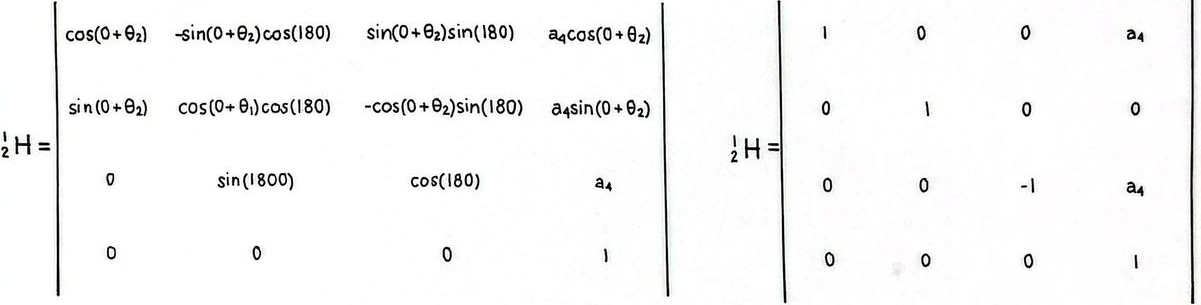 cos(0+θ₂) -sin(0+θ₂)cos(180) sin(0+θ₂)sin(180) a₄cos(0+θ₂)
sin(0+θ₂) cos(0+θ₁)cos(180) -cos(0+θ₂)sin(180) a₄sin(0+θ₂)
¹₂H =
0 sin(1800) cos(180) a₄
0 0 0 1
1 0 0 a₄
0 1 0 0
¹₂H =
0 0 -1 a₄
0 0 0 1